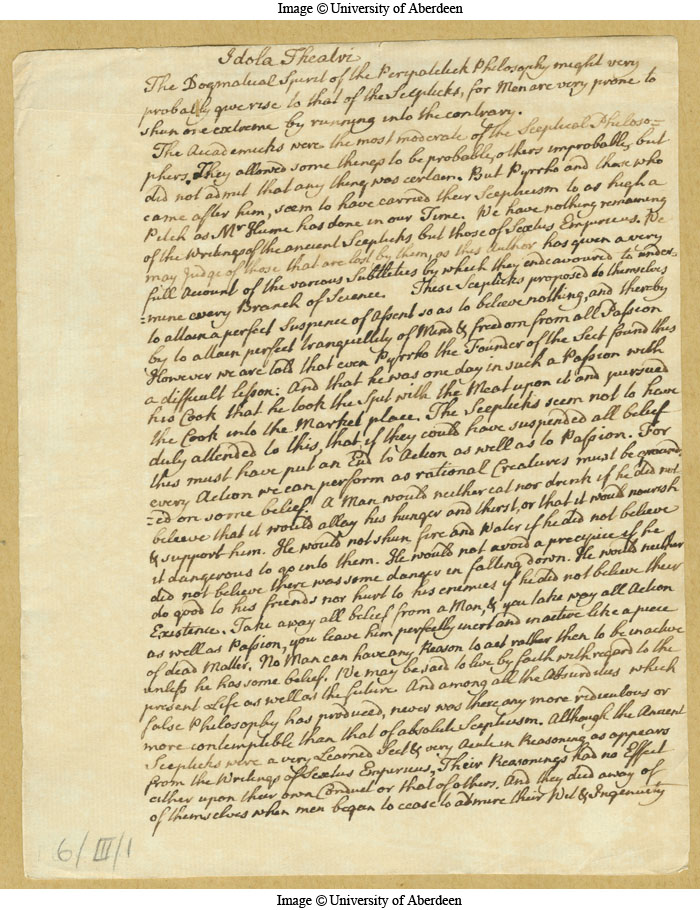 Image © University of Aberdeen
Idola Theatri
The Dogmatical Spirit of the Peripatetick Philosophy might very
probably give rise to that of the Scepticks, for Men are very prone to
shun one extreme by running into the contrary.
The Academicks were the most moderate of the Sceptical Philoso=
phers. They allowed some things to be probable, others improbable, but
did not admit that any thing was certain. But Pyrrho and those who
came after him, seem to have carried their Scepticism to as high a
Pitch as Mr Hume has done in our Time. We have nothing remaining
of the Writings of the ancient Scepticks but those of Sextus Empiricus. We
may Judge of those that are lost by them, as this Author has given a very
full Account of the various Subtleties by which they endeavoured to under=
=mine every Branch of Science. These Scepticks proposed to themselves
to attain a perfect Suspence of Assent so as to believe nothing, and thereby
by to attain perfect tranquillity of Mind & freedom from all Passion
However we are told that even Pyrrho the Founder of the Sect found this
a difficult lesson: And that he was one day in such a Passion with
his Cook that he took the Spit with the Meat upon it and pursued
the Cook into the Market place. The Scepticks seem not to have
duly attended to this, that if they could have suspended all belief
this must have put an End to Action as well as to Passion. For
every Action we can perform as rational Creatures must be ground
=ed on some belief. A Man would neither eat nor drink if he did not
believe that it would allay his hunger and thirst, or that it would nourish
& support him. He would not shun fire and Water if he did not believe
it dangerous to go into them. He would not avoid a precipice if he
did not believe there was some danger in falling down. He would neither
do good to his friends nor hurt to his enemies if he did not believe their
Existence. Take away all belief from a Man, & you take way all Action
as well as Passion, you leave him perfectly inert and inactive like a piece
of dead Matter. No Man can have any Reason to act rather then to be inactive
unless he has some belief. We may be said to live by faith with regard to the
present Life as well as the future And among all the Absurdities which
false Philosophy has produced, never was there any more ridiculous or
more contemptible than that of absolute Scepticism. Although the Ancient
Scepticks were a very Learned Sect & very Acute in Reasoning as appears
from the Writings of Sextus Empiricus, Their Reasonings had no Effect
either upon their own Conduct or that of others. And they died away of
of themselves when men began to cease to admire their Wit & Ingenuity
6/III/1
Image © University of Aberdeen